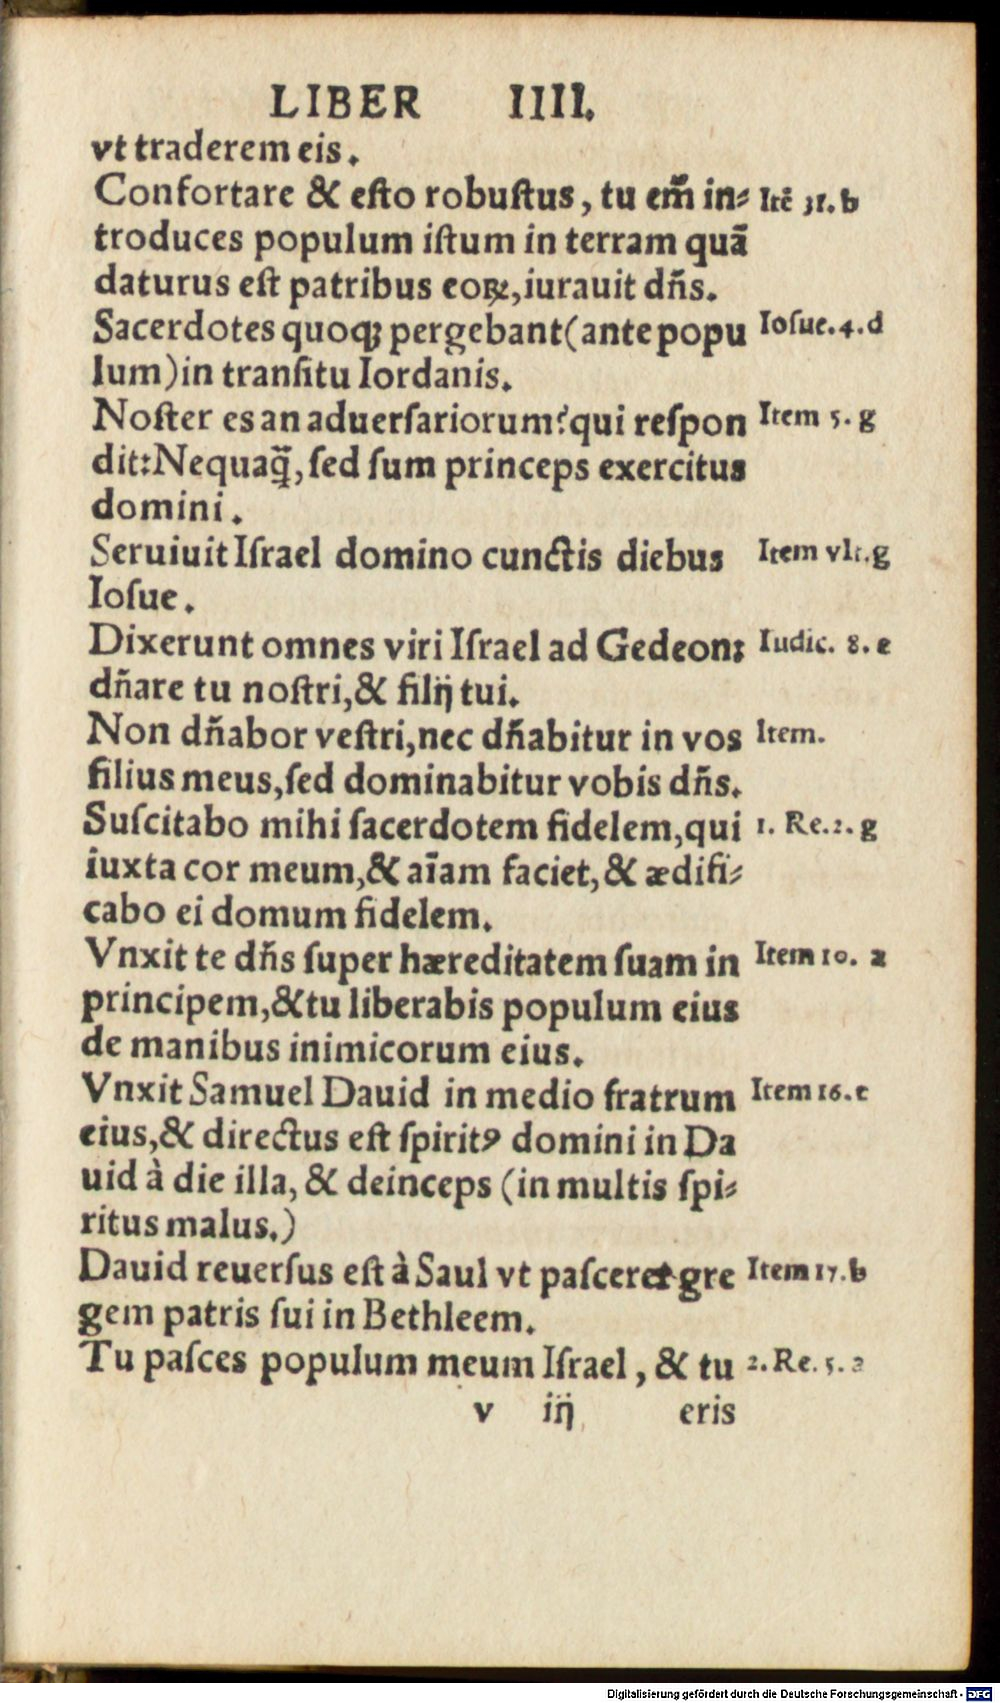 LIBER IIII.
vt traderem eis.
Confortare & eſto robuſtus, tu em̃ in⸗ Itẽ 31. b
troduces populum iſtum in terram quã
daturus eſt patribus eoꝝ, iurauit dñs.
Sacerdotes quoqꝫ pergebant (ante popu Ioſue. 4. d
lum) in tranſitu Iordanis.
Noſter es an aduerſariorum? qui reſpon Item 5. g
dit: Nequaq̃, ſed ſum princeps exercitus
domini.
Seruiuit Iſrael domino cunctis diebus Item vlt. g
Ioſue.
Dixerunt omnes viri Iſrael ad Gedeon: Iudic. 8. e
dñare tu noſtri, & filij tui.
Non dñabor veſtri, nec dñabitur in vos Item.
filius meus, ſed dominabitur vobis dñs.
Suſcitabo mihi ſacerdotem fidelem, qui 1. Re. 2. g
iuxta cor meum, & aĩam faciet, & ædifi⸗
cabo ei domum fidelem.
Vnxit te dñs ſuper hæreditatem ſuam in Item 10. a
principem, & tu liberabis populum eius
de manibus inimicorum eius.
Vnxit Samuel Dauid in medio fratrum Item 16. c
eius, & directus eſt ſpiritꝰ domini in Da
uid à die illa, & deinceps (in multis ſpi⸗
ritus malus.)
Dauid reuerſus eſt à Saul vt paſceret gre Item 17. b
gem patris ſui in Bethleem.
Tu paſces populum meum Iſrael, & tu 2. Re. 5. a
v iij eris
Digitalisierung gefördert durch die Deutsche Forschungsgemeinschaft - DFG